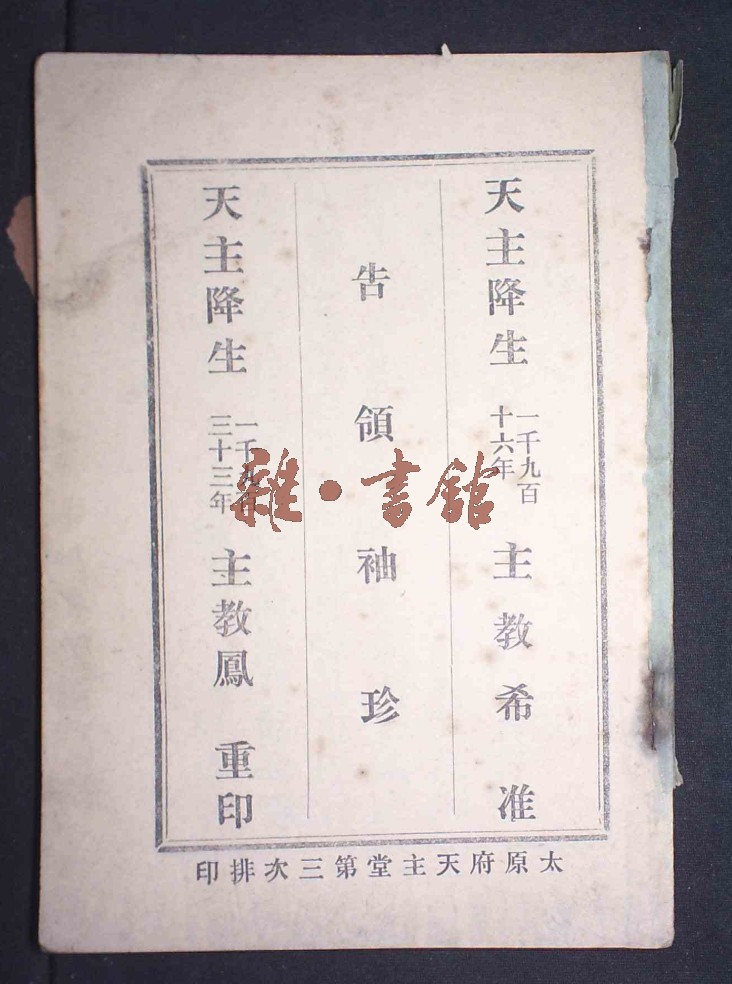 天主降生一千九百十六年主教希准
告領袖珍
天主降生一千九百三十三年主教鳳重印
太原府天主堂第三次排印
雜·書館